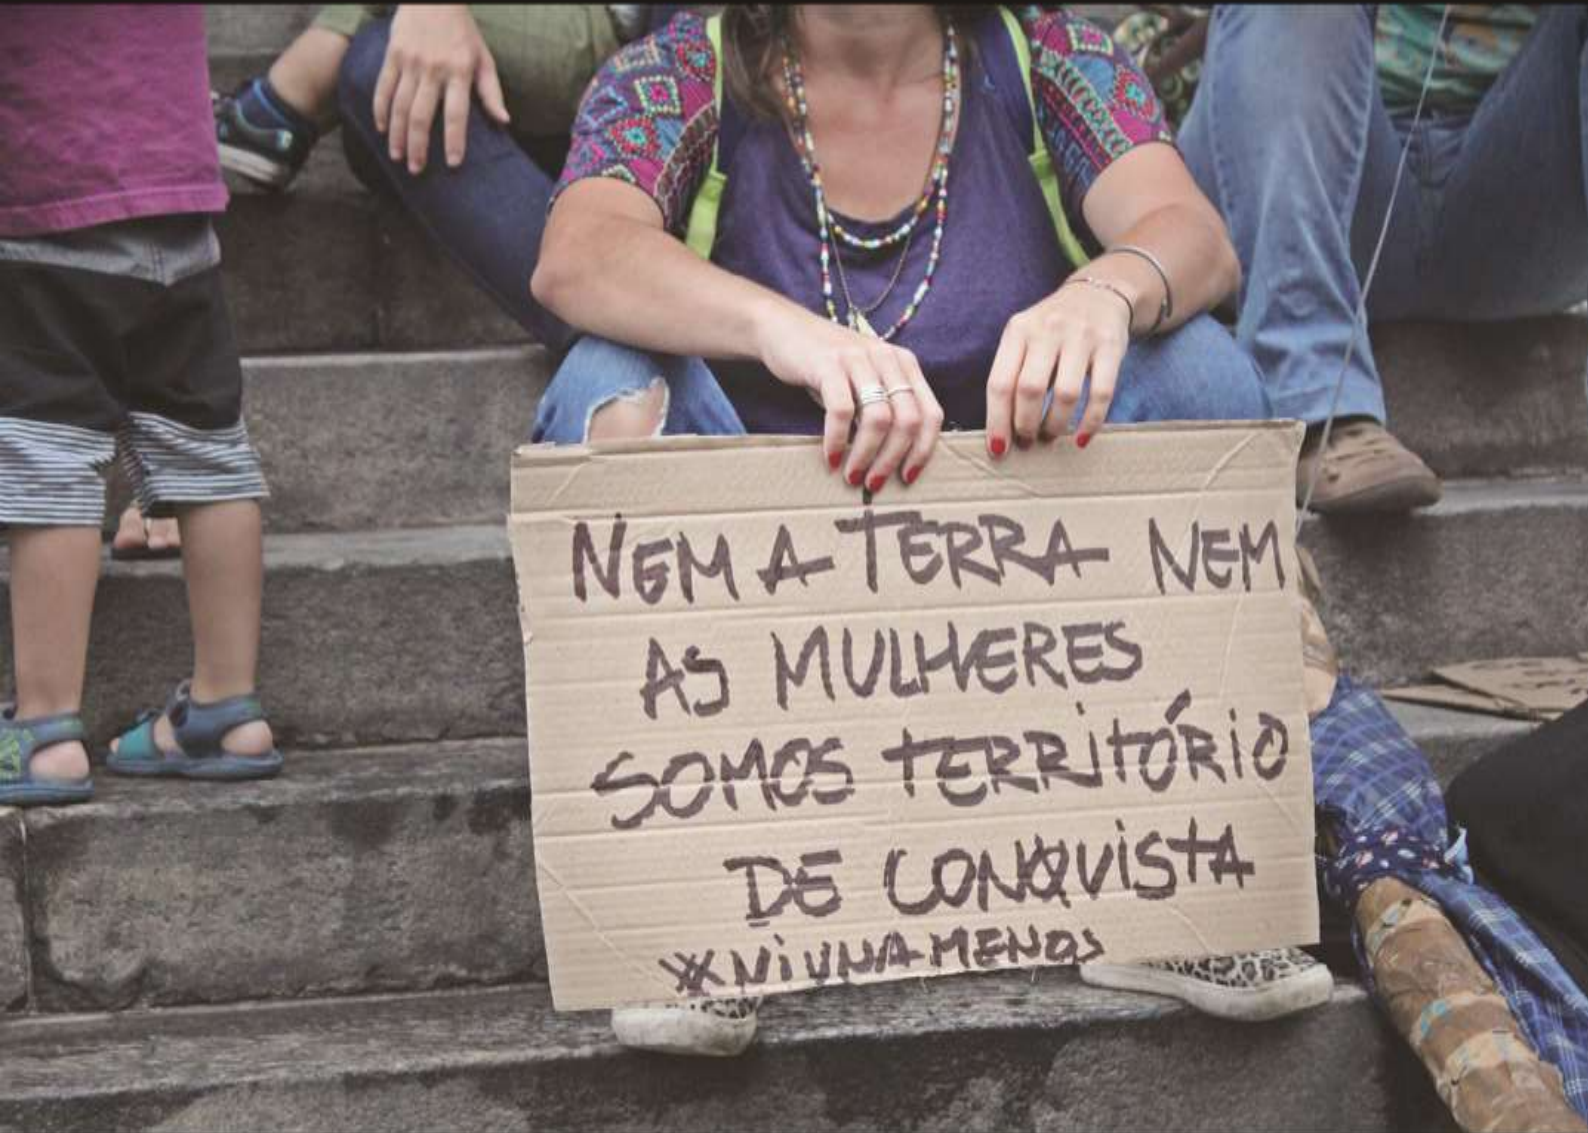 NEM A TERRA NEM
AS MULHERES
SOMOS TERRITÓRIO
DE CONQUISTA
#NIUNAMENOS